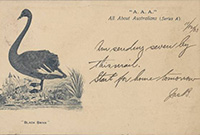 "A.A.A."
All About Australians (Series A)
Am sending seven by
this mail.
Start for home tomorrow
Jack
"BLACK SWAN"